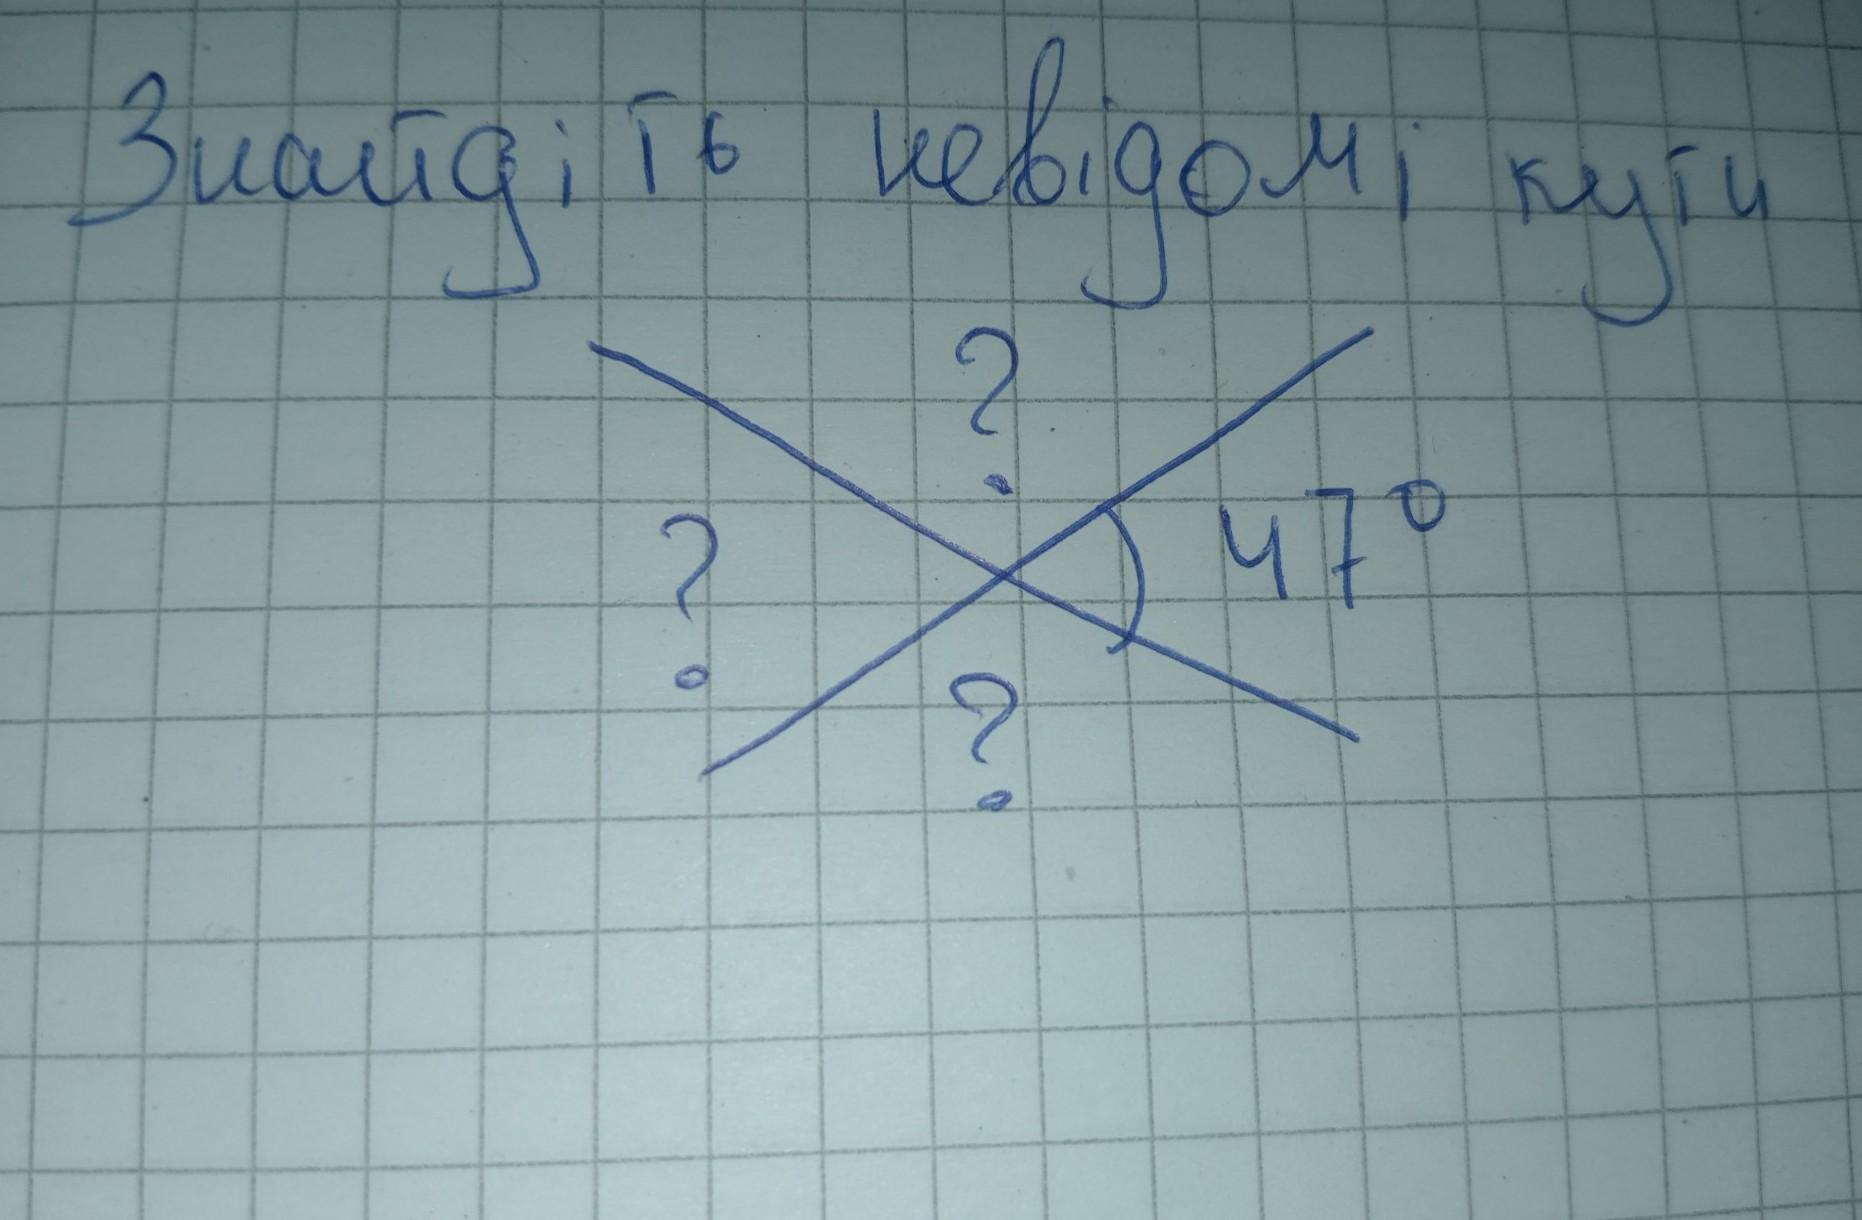 Знайдіть невідомі кути
?
47°
?
?